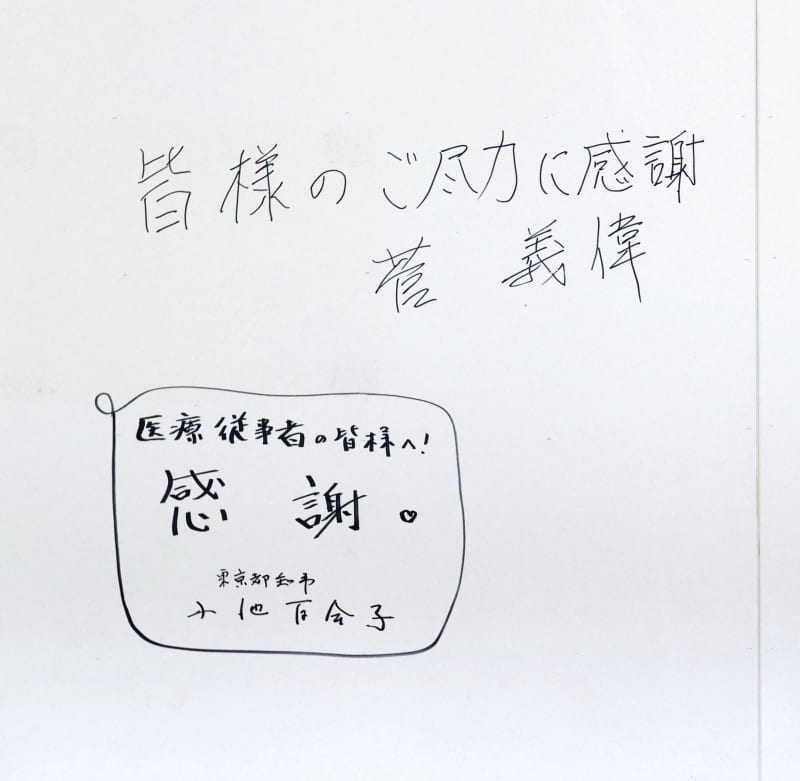 皆様のご尽力に感謝
菅 義偉
医療従事者の皆様へ!
感 謝。
東京都知事
小池百合子